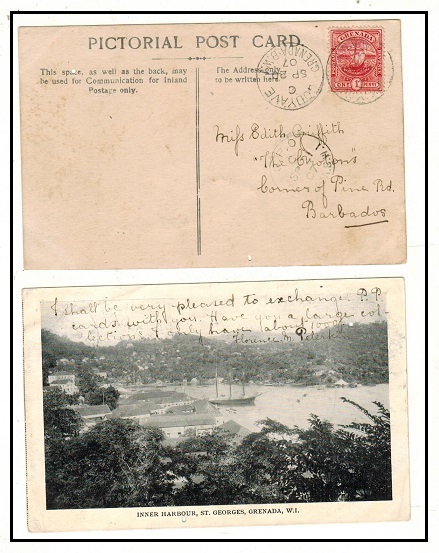 PICTORIAL POST CARD.
This space, as well as the back, may
be used for Communication for Inland
Postage only.
The Address only
to be written here.
GRENADA
ONE PENNY
GOUYAVE
C
SP 24
07
GRENADA B.W.I.
Miss Edith Griffith
"The
Corner of Pine Rd.
Barbados
I shall be very pleased to exchange P.P.
cards with you. Have you a large col-
lection? I only have about 100
Florence M.
INNER HARBOUR, ST. GEORGES, GRENADA, W.I.